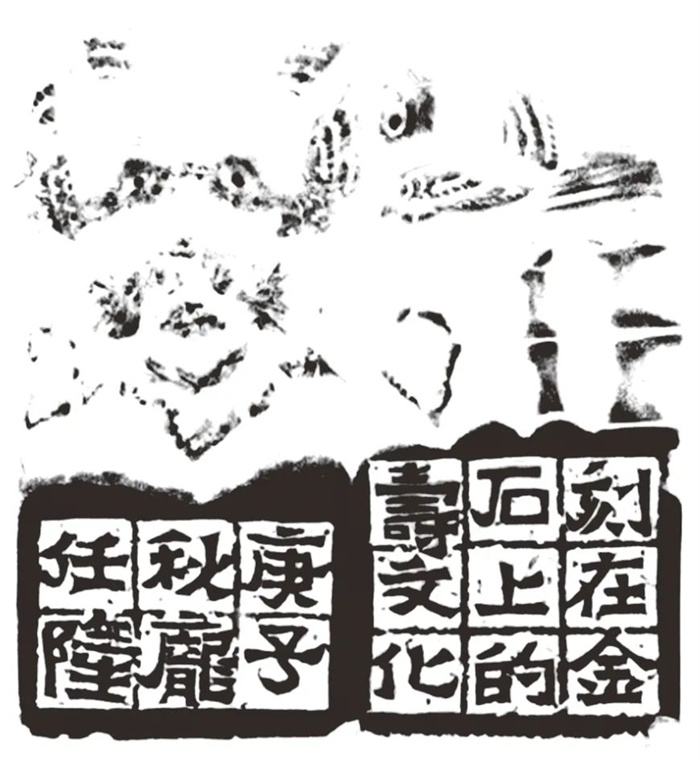 刻在金
石上的
壽文化
庚子
秋龐
任隆